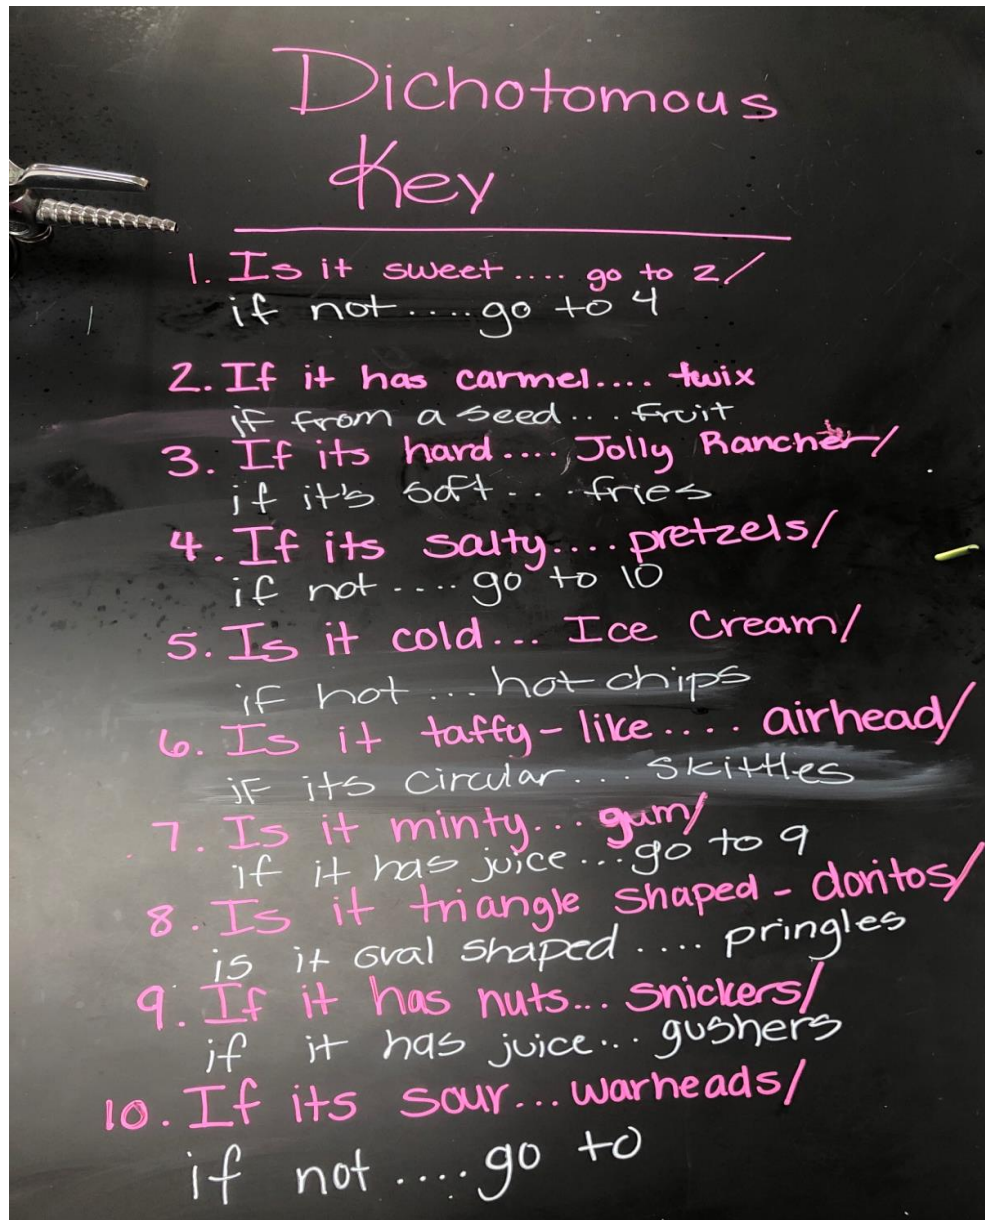 Dichotomous
Key
1. Is it sweet .... go to 2/
if not .... go to 4
2. If it has carmel.... twix
if from a seed... fruit
3. If its hard .... Jolly Rancher/
if it's soft... fries
4. If its salty.... pretzels/
if not .... go to 10
5. Is it cold... Ice Cream/
if hot ... hot chips
6. Is it taffy-like .... airhead/
if its circular... skittles
7. Is it minty... gum/
if it has juice ... go to 9
8. Is it triangle shaped - doritos/
is it oval shaped .... pringles
9. If it has nuts... snickers/
if it has juice... gushers
10. If its sour... warheads/
if not .... go to